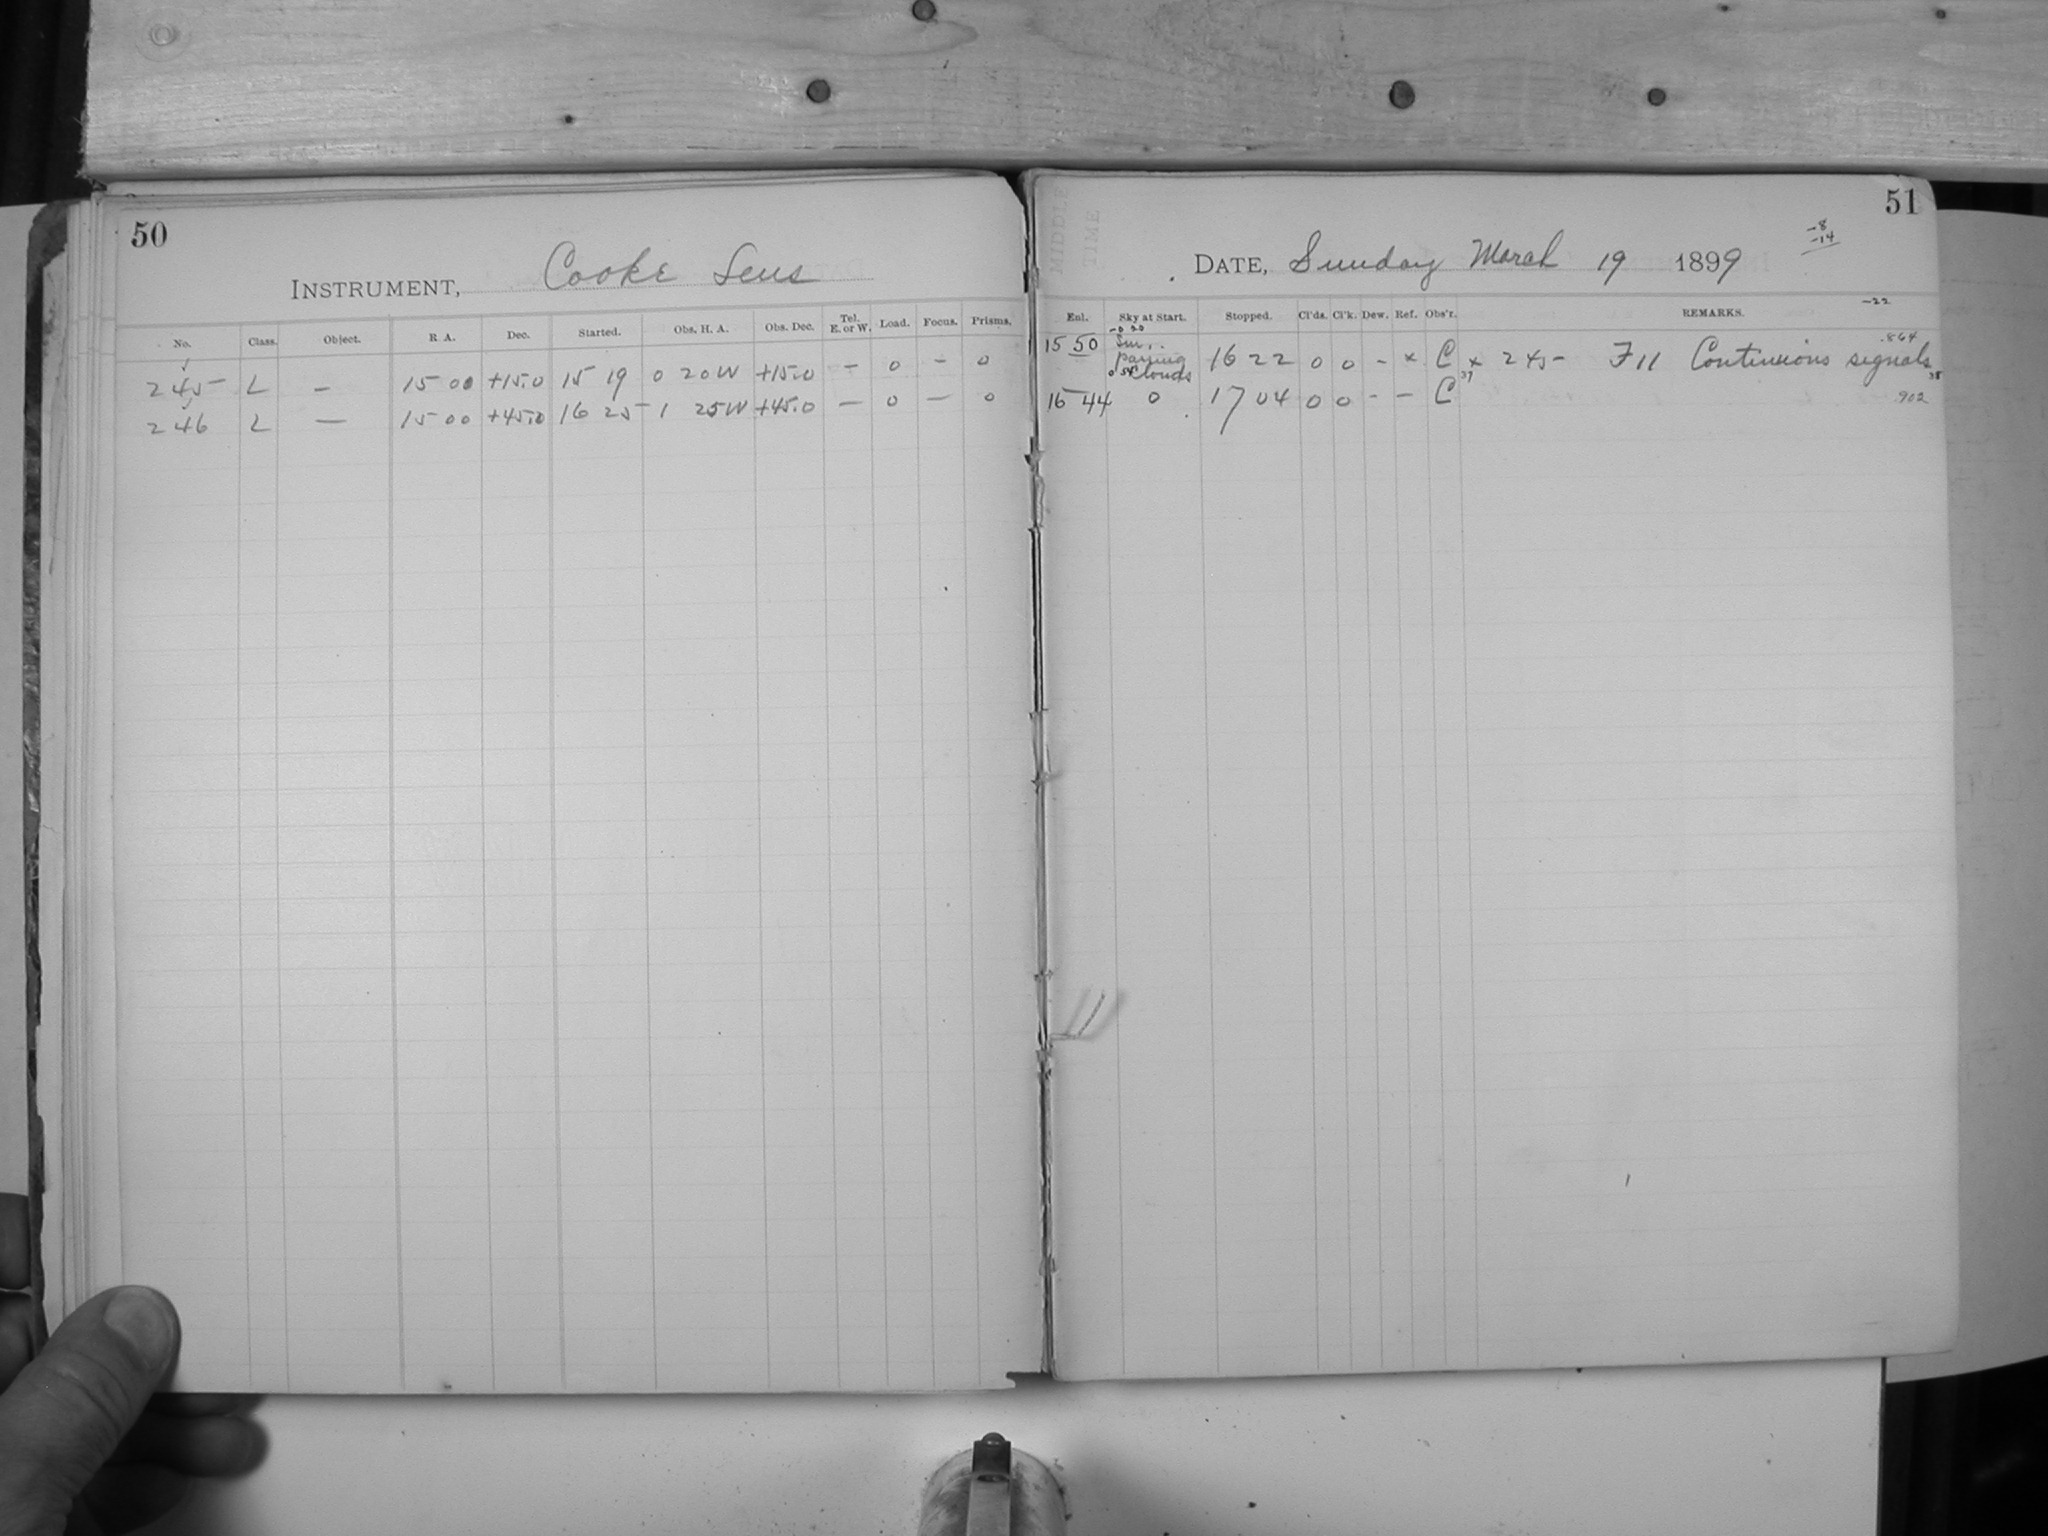 50
INSTRUMENT, Cooke Lens
No. Class. Object. R A. Dec. Started. Obs. H. A. Obs. Dec. Tel. E. or W. Load. Focus. Prisms.
245 L – 15 00 +15.0 15 19 0 20 W +15.0 – 0 – 0
246 L – 15 00 +45.0 16 25 1 25 W +45.0 – 0 – 0
51
-8
-14
DATE, Sunday March 19 1899
-22
MIDDLE
TIME
Enl. Sky at Start. Stopped. Cl'ds. Cl'k. Dew. Ref. Obs'r. REMARKS.
15 50 passing clouds 16 22 0 0 - x C x 245 F11 Continuous signals .864
16 44 0 17 04 0 0 - - C 37 38 .902